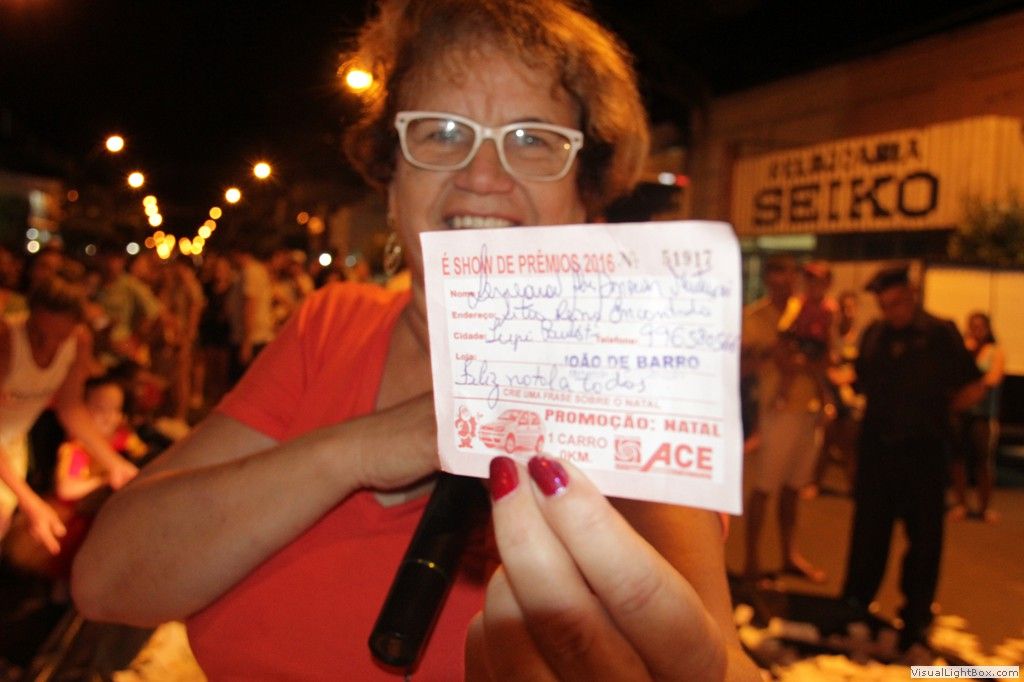 SEIKO
É SHOW DE PRÊMIOS 2016 Nº 51917
Nome:
Endereço: Sitio Reino Encantado
Cidade: Tupi Paulista Telefone:
Loja: JOÃO DE BARRO
Feliz natal a todos
CRIE UMA FRASE SOBRE O NATAL
PROMOÇÃO: NATAL
1 CARRO
0KM.
ACE
VisualLightBox.com